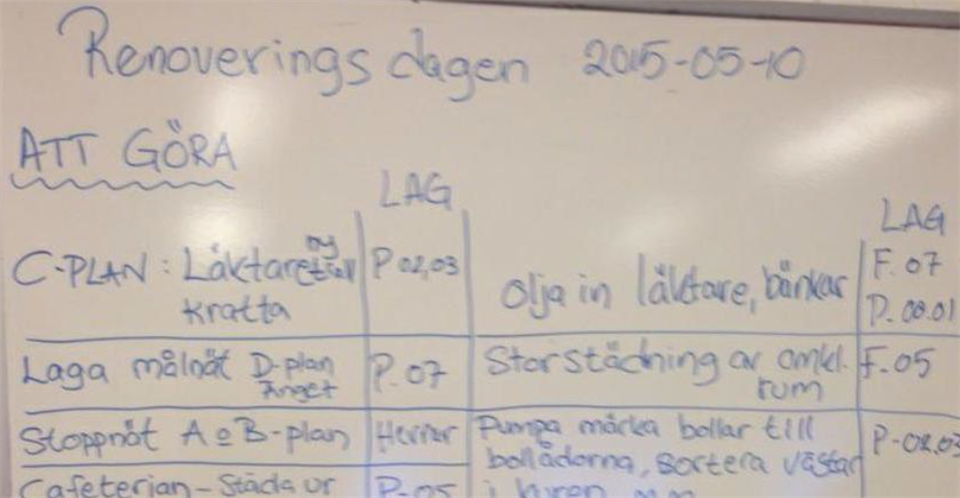 Renoverings dagen 2015-05-10
ATT GÖRA
LAG
C-PLAN: Läktare ny
kratta
P 02,03
Laga målnät D-plan
Änget
P.07
Stoppnät A o B-plan
Herrar
Cafeterian - Städa ur
P-05
LAG
Olja in läktare, bänkar
F. 07
P. 00.01
Storstädning av omkl.
rum
F.05
Pumpa märka bollar till
bollådorna, sortera västar
P-02,03